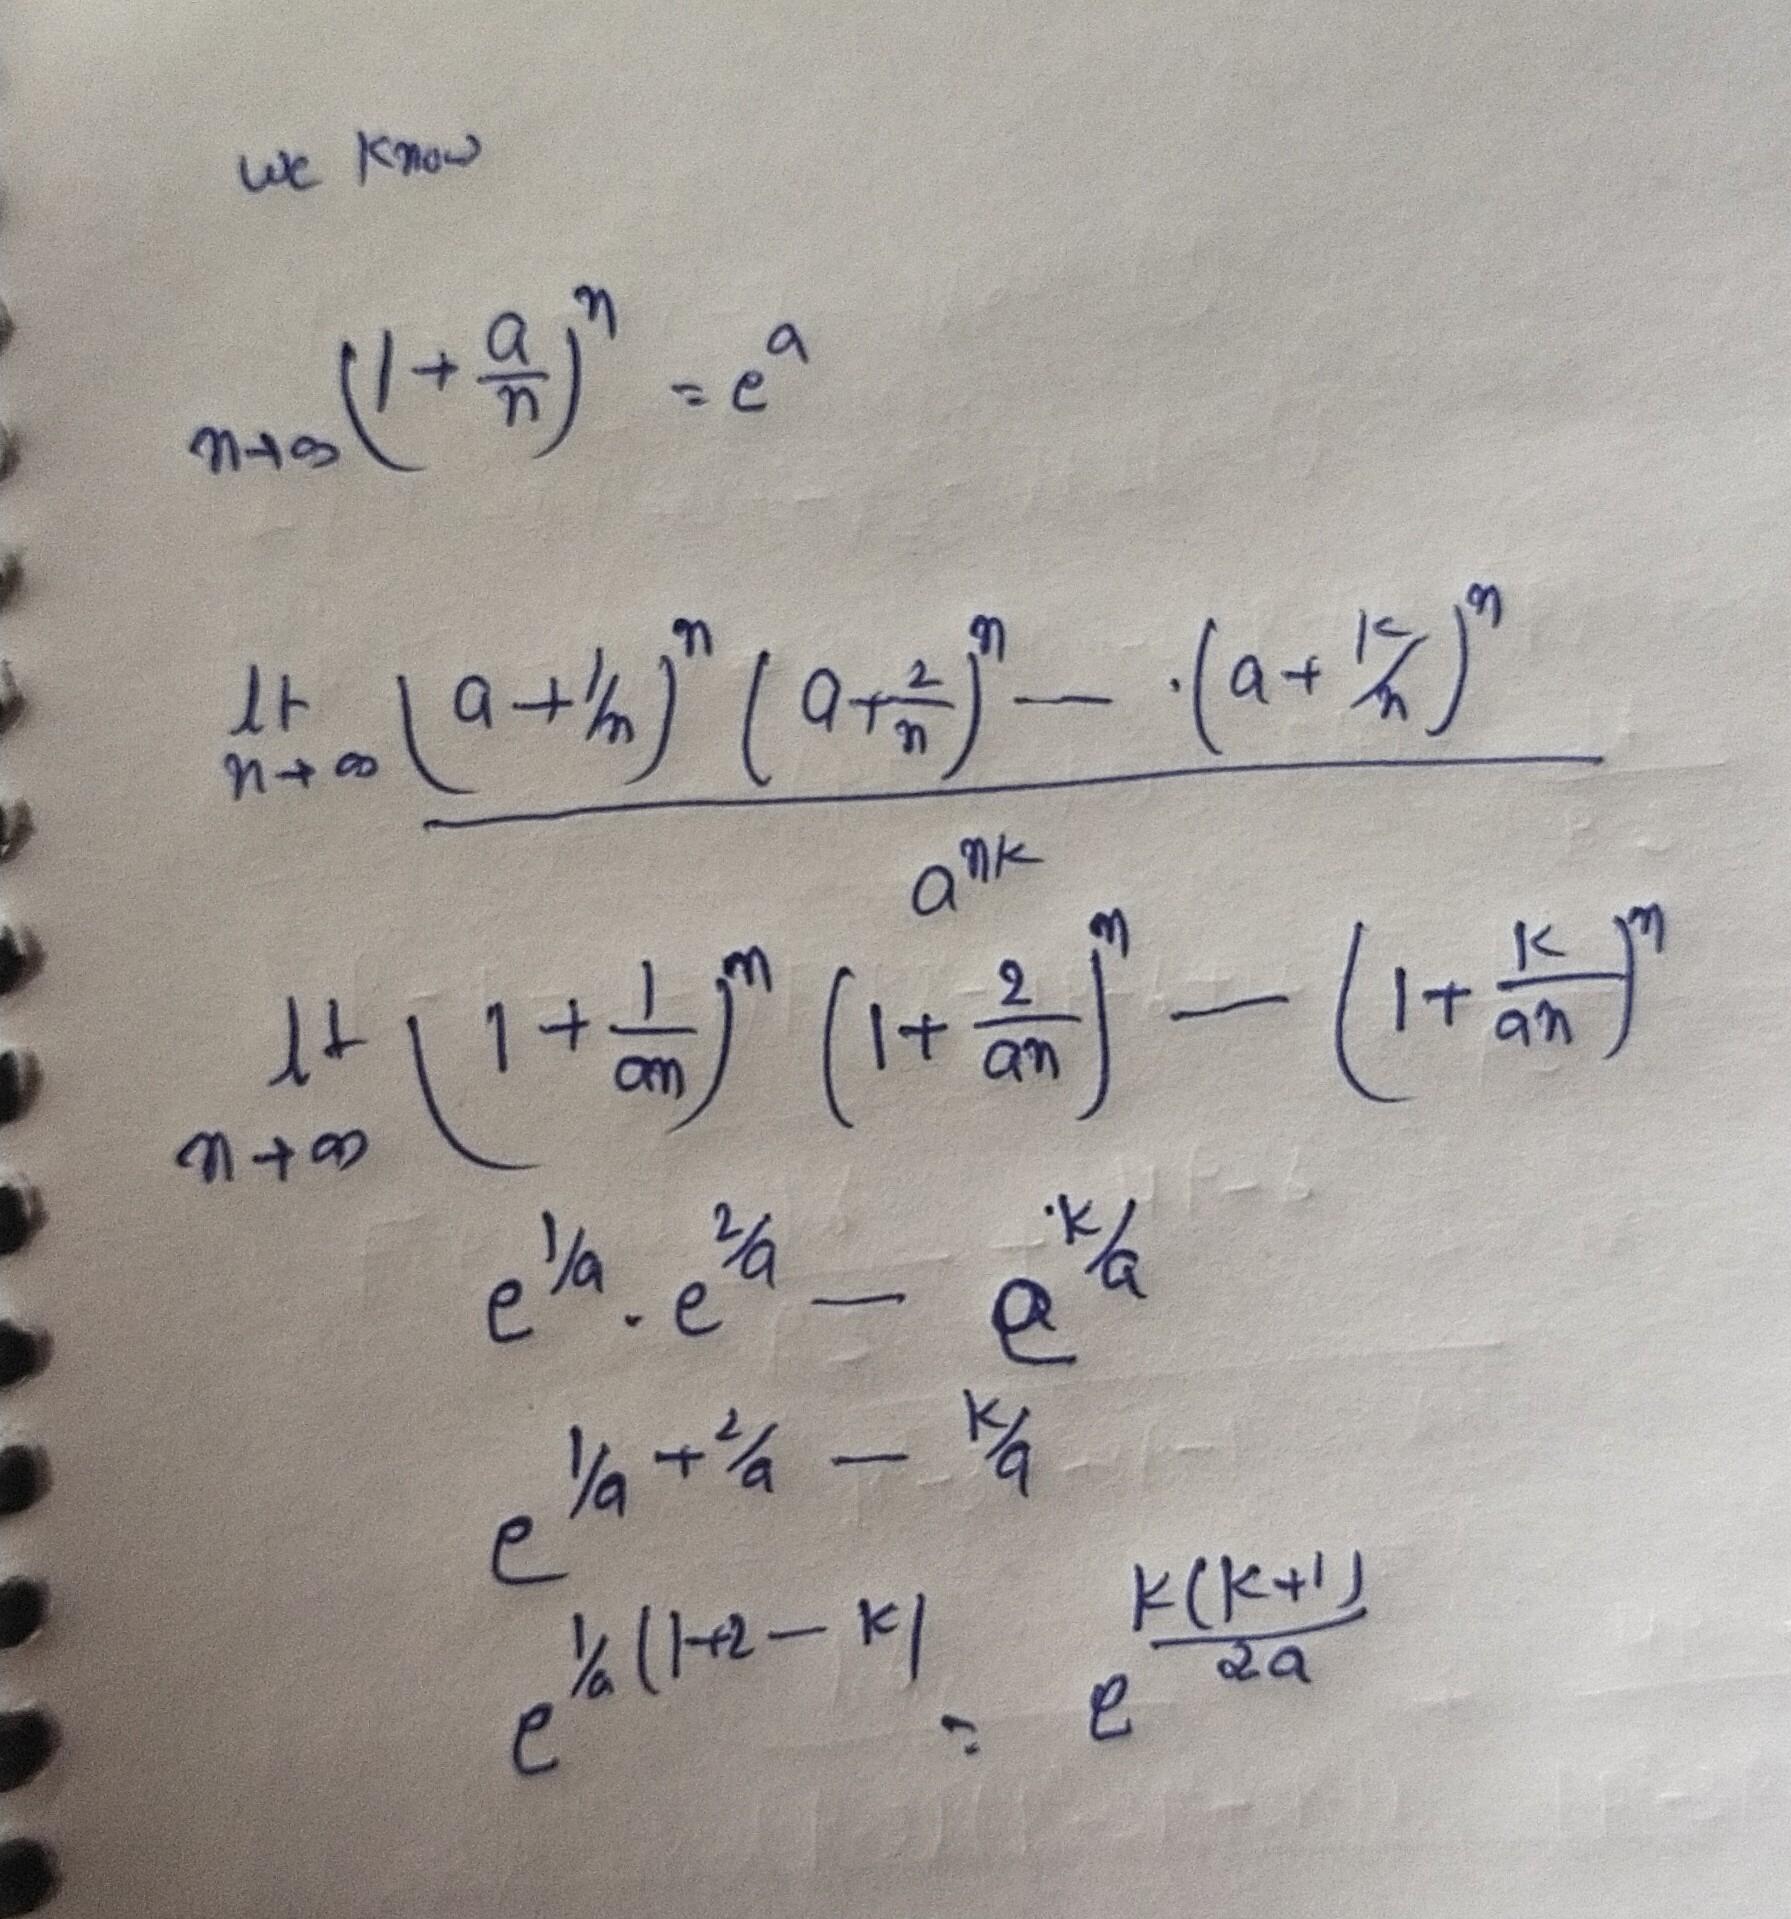 we know
n→∞ (1 + a/n)^n = e^a
lt n→∞ (a + 1/n)^n (a + 2/n)^n — · (a + k/n)^n
a^nk
lt n→∞ (1 + 1/an)^n (1 + 2/an)^n — (1 + k/an)^n
e^1/a . e^2/a — e^k/a
e^1/a + 2/a — k/a
e^1/a (1+2 — k) = e^k(k+1)/2a